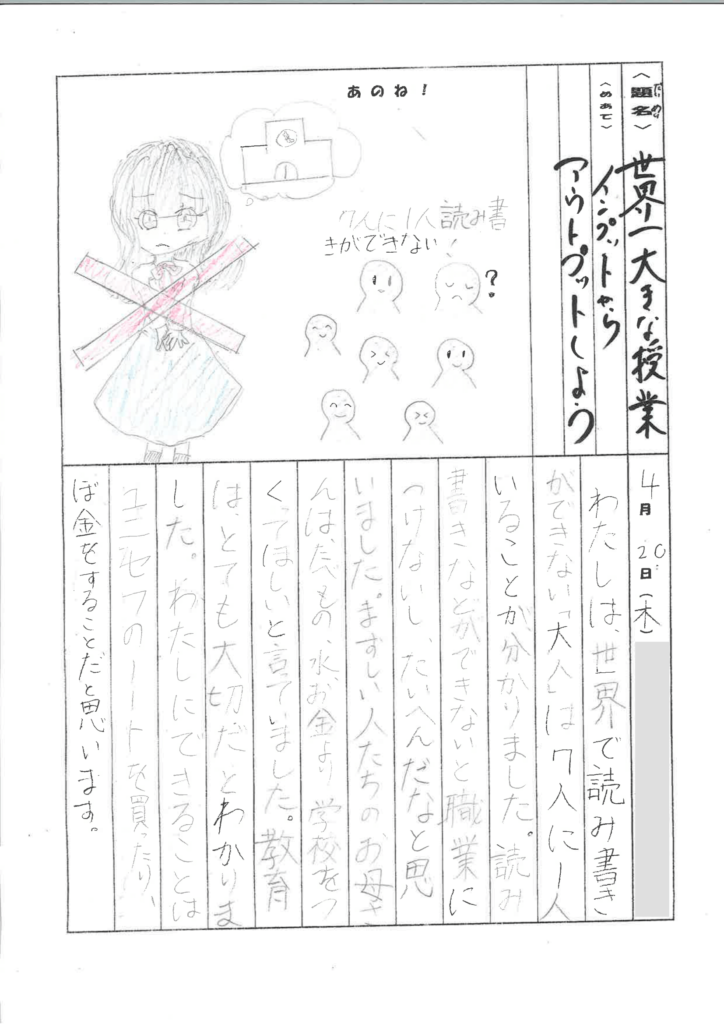 〈題名〉世界一大きな授業
だい めい
〈めあて〉インプットから
アウトプットしよう
あのね!
7人に1人読み書
きができない!
?
4月20日(木)
わたしは、世界で読み書き
ができない「大人」は7人に1人
いることが分かりました。読み
書きなどができないと職業に
つけないし、たいへんだなと思
いました。まずしい人たちのお母さ
んは、たべもの、水お金より学校をつ
くってほしいと言ていました。教育
は、とても大切だとわかりま
した。わたしにできることは
ユニセフのノートを買ったり、
ぼ金をすることだと思います。